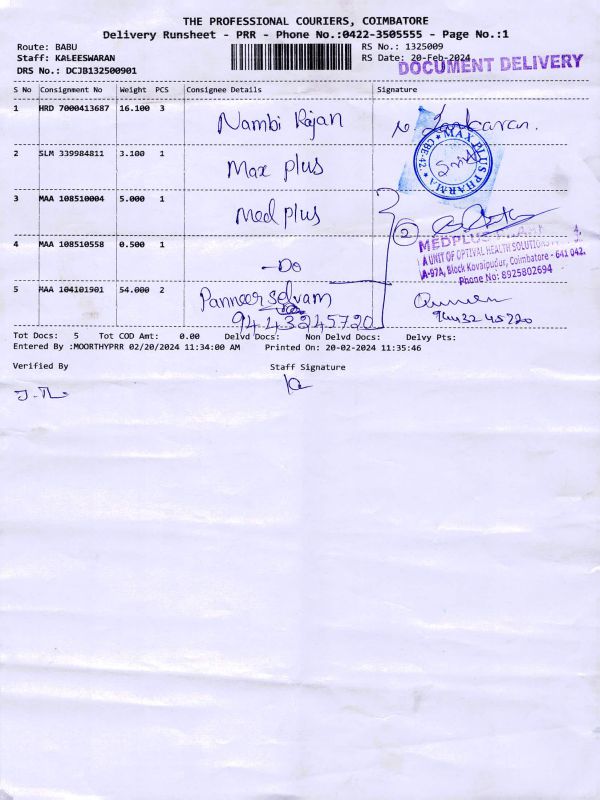 THE PROFESSIONAL COURIERS, COIMBATORE
Delivery Runsheet - PRR - Phone No.:0422-3505555 - Page No.:1
Route: BABU
Staff: KALEESWARAN
DRS No.: DCJB132500901
RS No.: 1325009
RS Date: 20-Feb-2024
DOCUMENT DELIVERY
S No Consignment No Weight PCS Consignee Details Signature
1 HRD 7000413687 16.100 3 Nambi Rajan
MAX PLUS PHARMA CBE-42
2 SLM 339984811 3.100 1 Max plus
3 MAA 108510004 5.000 1 Med plus
2
4 MAA 108510558 0.500 1 - Do
MEDPLUS
A UNIT OF OPTIVAL HEALTH SOLUTIONS
A-97A, Block Kovaipudur, Coimbatore - 641 042.
Phone No: 8925802694
5 MAA 104101901 54.000 2 Panneerselvam
9443245720 9443245720
Tot Docs: 5 Tot COD Amt: 0.00 Delvd Docs: Non Delvd Docs: Delvy Pts:
Entered By :MOORTHYPRR 02/20/2024 11:34:00 AM Printed On: 20-02-2024 11:35:46
Verified By Staff Signature